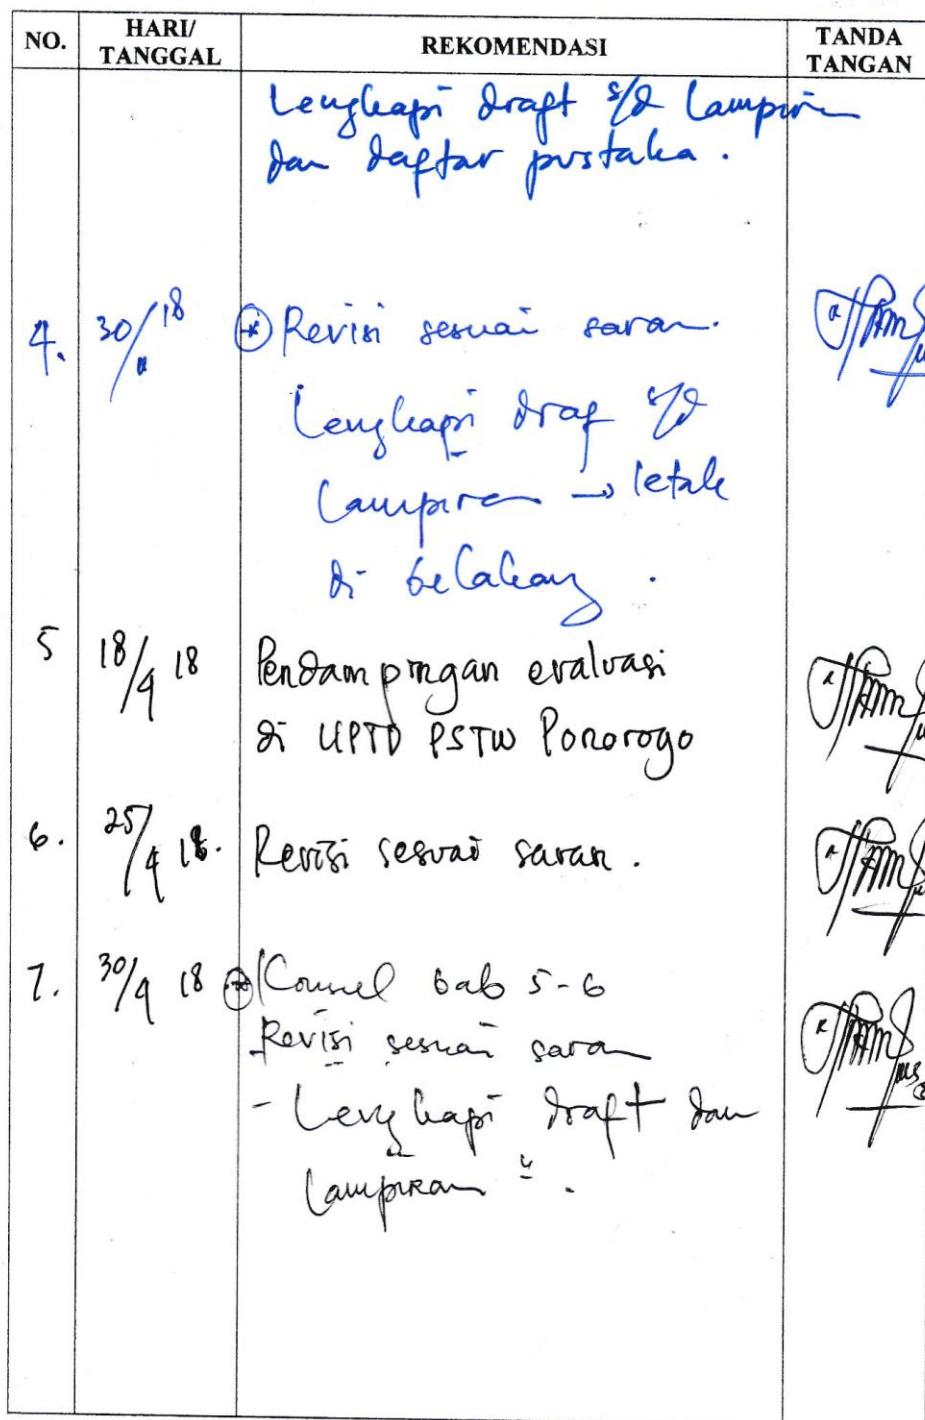 NO.
HARI/
TANGGAL
REKOMENDASI
TANDA
TANGAN
Lengkapi draft s/d Lampiran
dan daftar pustaka.
4. 30/ 18 Revisi sesuai saran.
Lengkapi draf s/d
Lampiran → letak
di belakang.
5 18/4 18 Pendampingan evaluasi
di UPTD PSTW Ponorogo
6. 25/4 18. Revisi sesuai saran.
7. 30/4 18 bab 5-6
Revisi sesuai saran
- Lengkapi draft dan
Lampiran